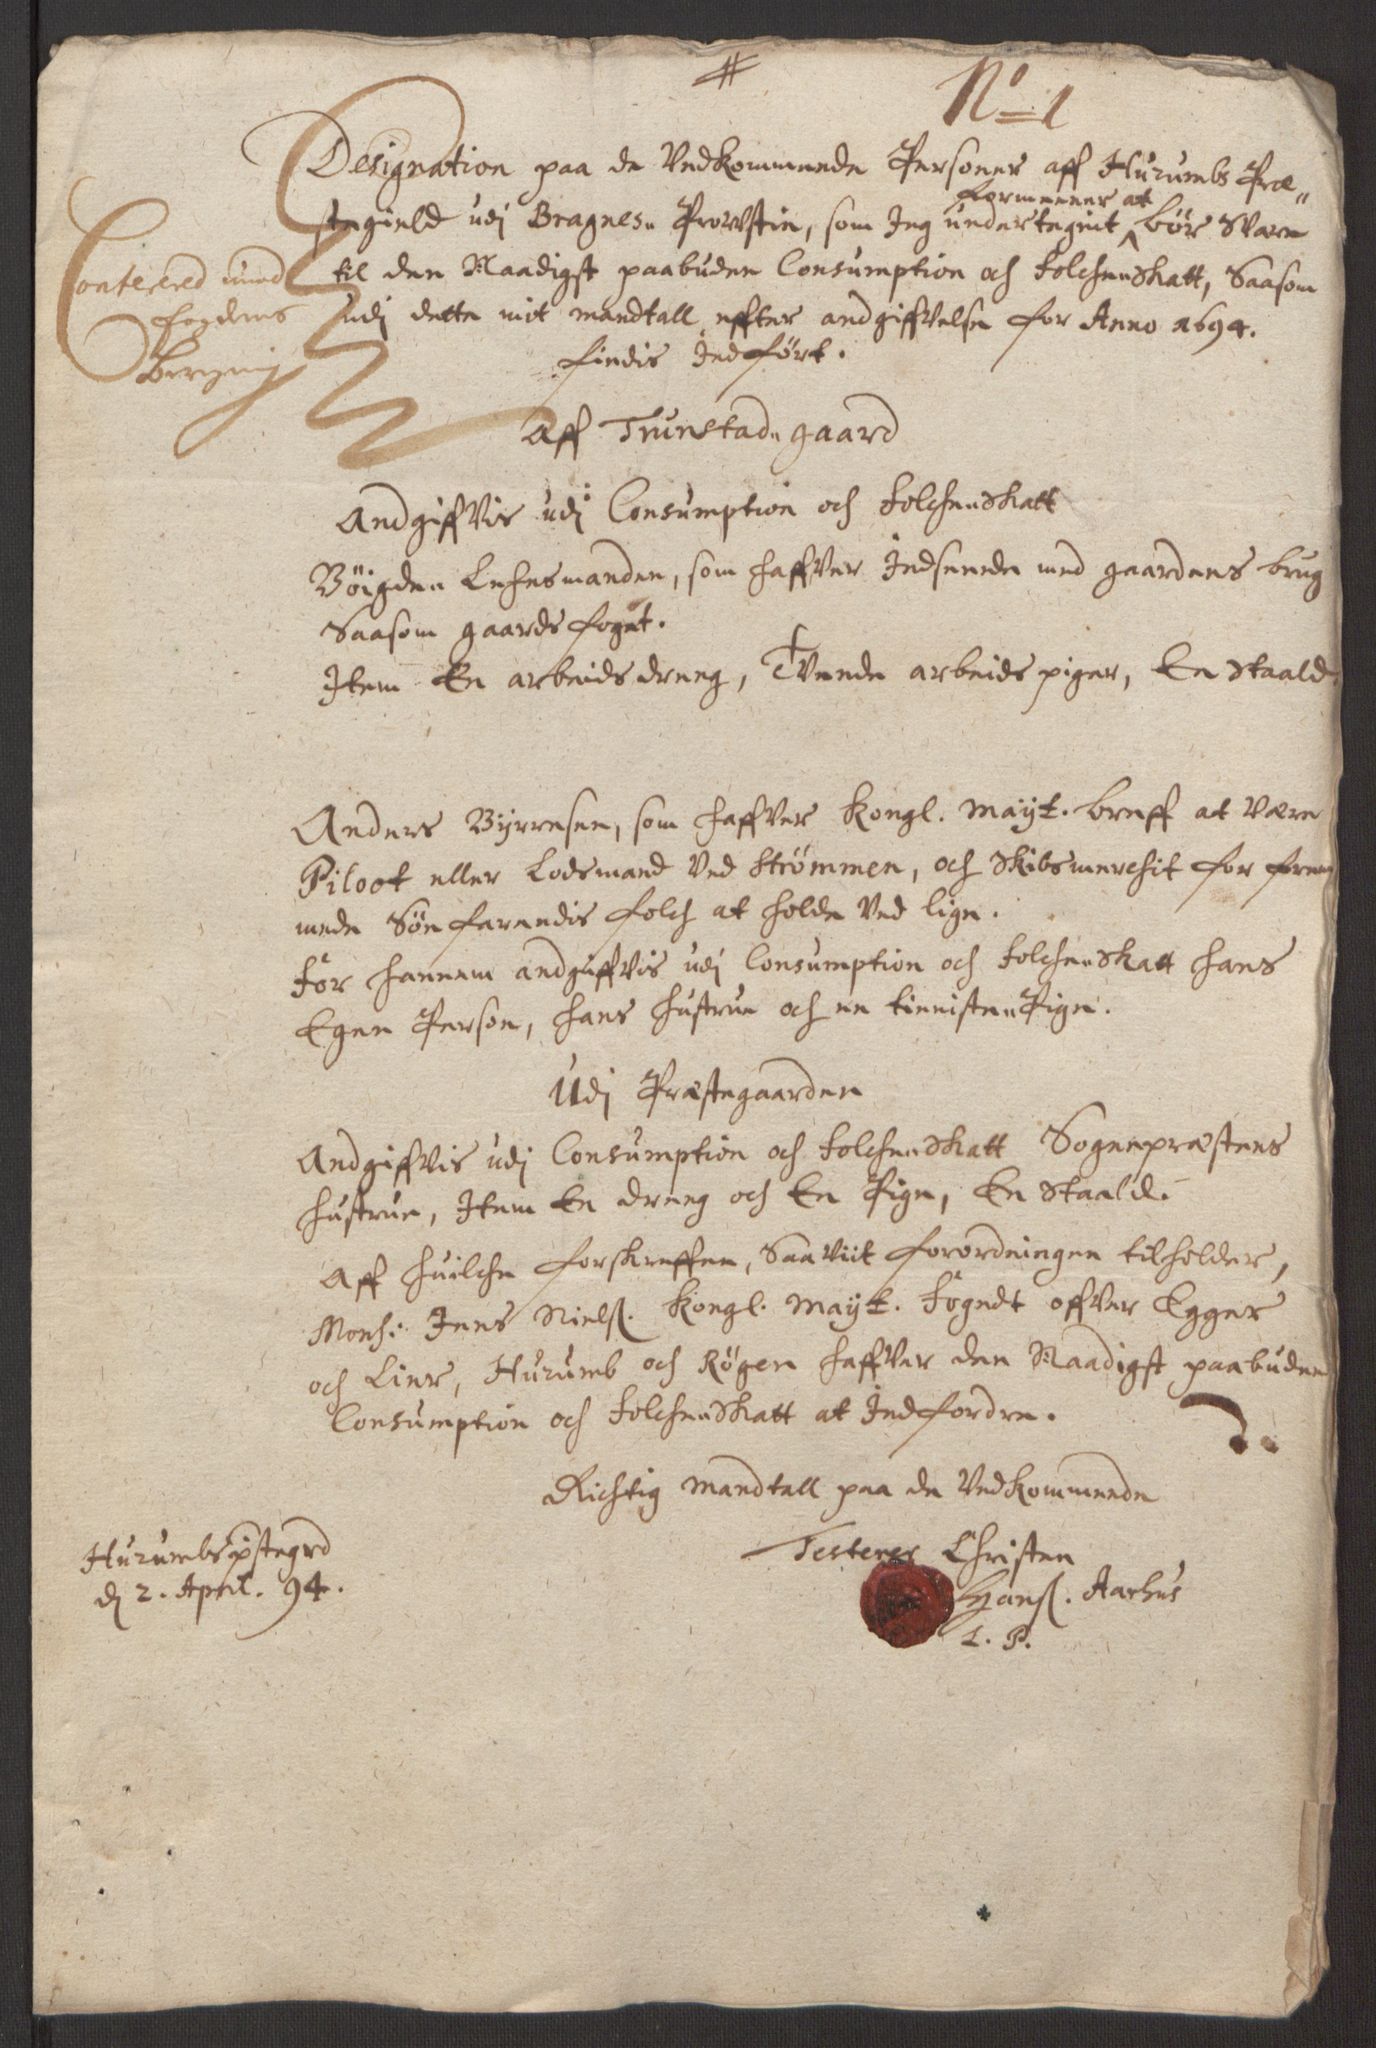 #
No 1
Designation paa de Vedkommende Personer aff Hurumbs Præ„
stegield udj Bragnes„ Prowstie, som Jeg undertegnet formeener at bør Svare
til den Naadigst paabuden Consumption och folche„Skatt, Saasom
udj dette mit mandtall effter andgiffvelse for Anno 1694.
findis Indført.
Conterered med
fogdens
Aff Trunstad„ gaard
Andgiffvis udj Consumption och folche„Skatt
Bøigde„ Lehnsmanden, som haffver Indseende med gaardens brug
Saasom gaards foget.
Item En arbeids dreng, Tvende arbeids piger, En Staald.
Anders Byrresen, som haffver Kongl. Mayt. breff at være
Piloot eller Lodsmand Ved Strømmen, och Skibsmerchit for frem„
mede Søe farendis folch at holde Ved lige.
For hannem andgiffvis udj Consumption och folche„Skatt hans
Egen Person, hans hustrue och en tieniste„Pige.
Udj Præstegaarden
Andgiffvis udj Consumption och folche„Skatt Sognepræstens
hustrue, Item En dreng och En Pige, En Staald.
Aff huilche forskreffne, Saaviit forordningen tilholder,
Monsr. Jens Nielß. Kongl. Mayt. fogedt offver Egger
och Lier, Hurumb och Røgen haffver den Naadigst paabuden
Consumption och folche„Skatt at Indfordre.
Richtig Mandtall paa de Vedkommende
Testerer Christen
Hanß. Aarhus
L. P.
Hurumbs pstegrd
dj 2. April. 94.